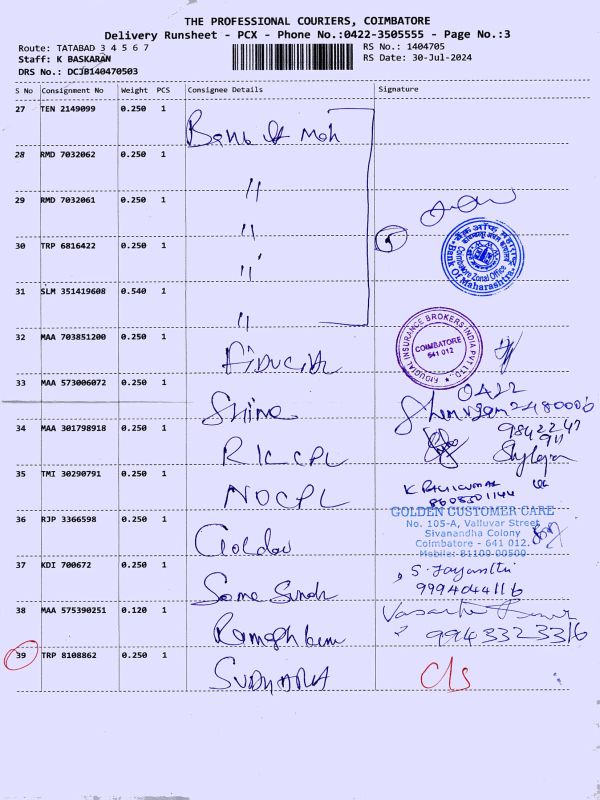 THE PROFESSIONAL COURIERS, COIMBATORE
Delivery Runsheet - PCX - Phone No.:0422-3505555 - Page No.:3
Route: TATABAD 3 4 5 6 7
RS No.: 1404705
Staff: K BASKARAN
RS Date: 30-Jul-2024
DRS No.: DCJB140470503
S No Consignment No Weight PCS Consignee Details Signature
27 TEN 2149099 0.250 1 Bank of Mah
28 RMD 7032062 0.250 1 "
29 RMD 7032061 0.250 1 "
30 TRP 6816422 0.250 1 "
5
बैंक ऑफ महाराष्ट्र
Coimbatore Zonal Office
Bank Of Maharashtra
31 SLM 351419608 0.540 1 "
32 MAA 703851200 0.250 1 Fiducial
FIDUCIAL INSURANCE BROKERS INDIA PVT LTD.
COIMBATORE
641 012
33 MAA 573006072 0.250 1 Shine
0422
2480006
34 MAA 301798918 0.250 1 RICCPL
984224
911
35 TMI 30290791 0.250 1 NOCPL
8608501144
36 RJP 3366598 0.250 1 Golden
GOLDEN CUSTOMER CARE
No. 105-A, Valluvar Street
Sivanandha Colony
Coimbatore - 641 012.
Mobile: 81100 00500
37 KDI 700672 0.250 1
S. Jayanthi
9994044116
38 MAA 575390251 0.120 1
9943323316
39 TRP 8108862 0.250 1
C/s